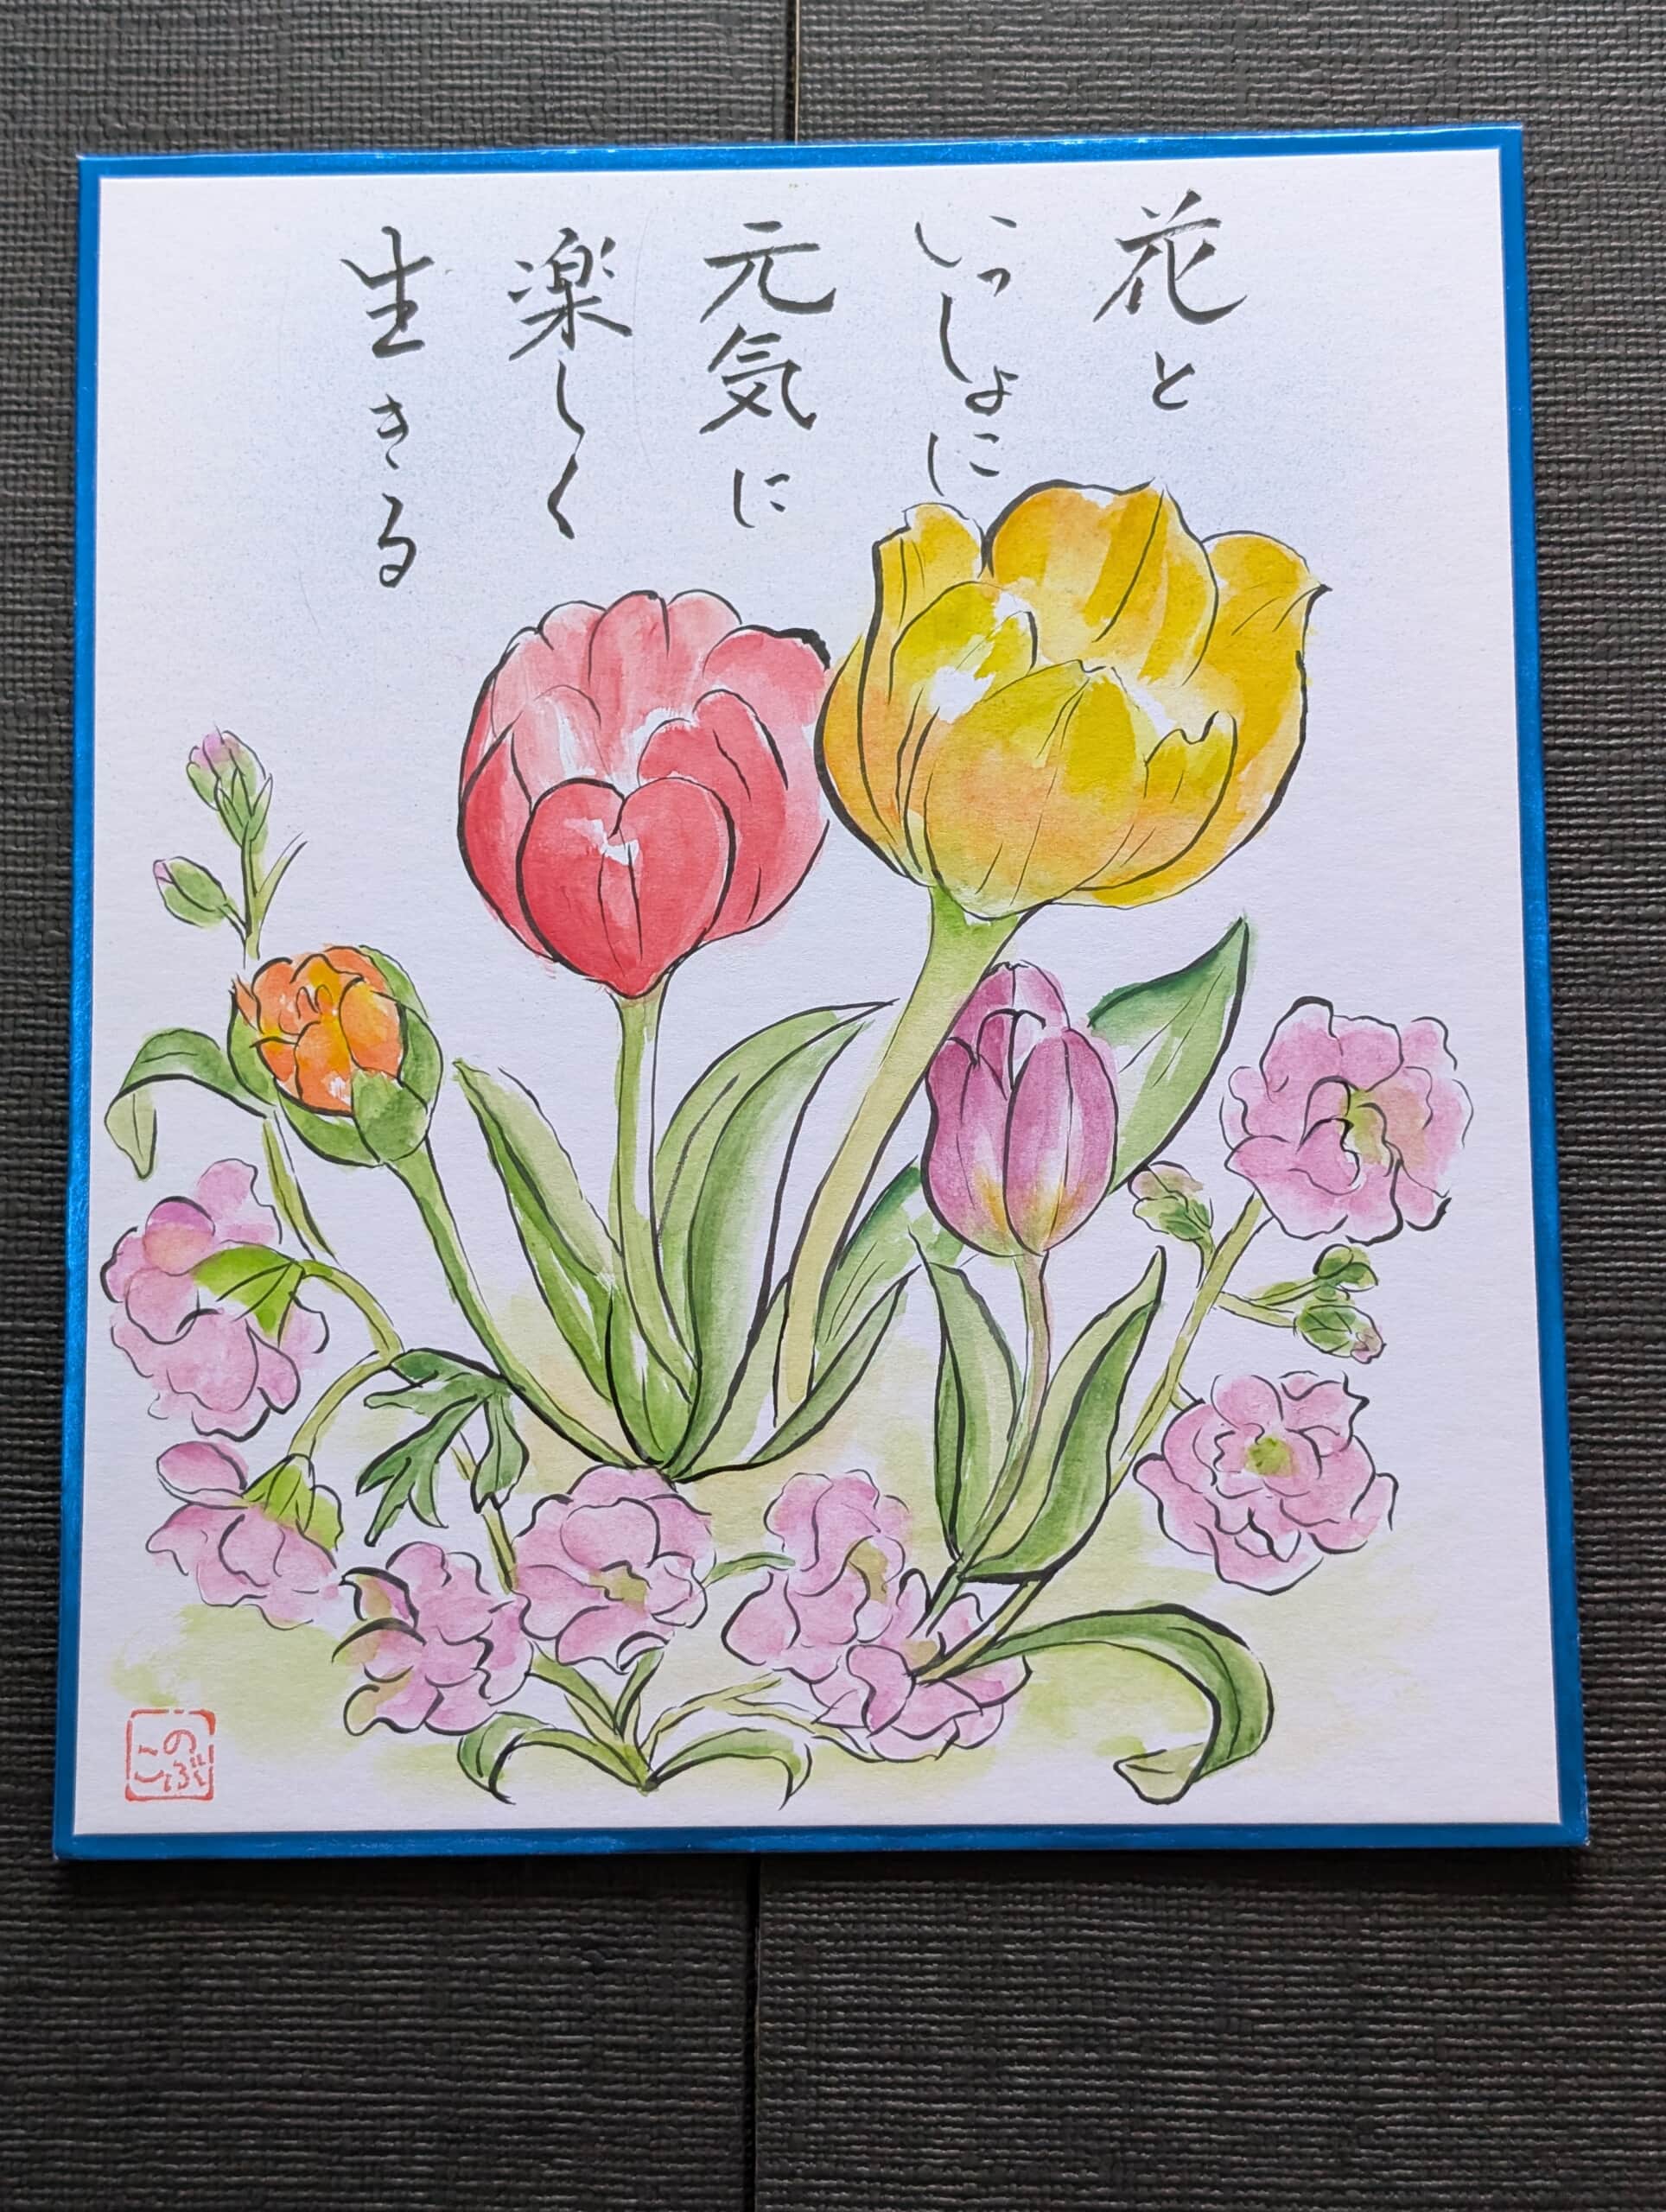 花と
いっしょに
元気に
楽しく
生きる
のぶこ